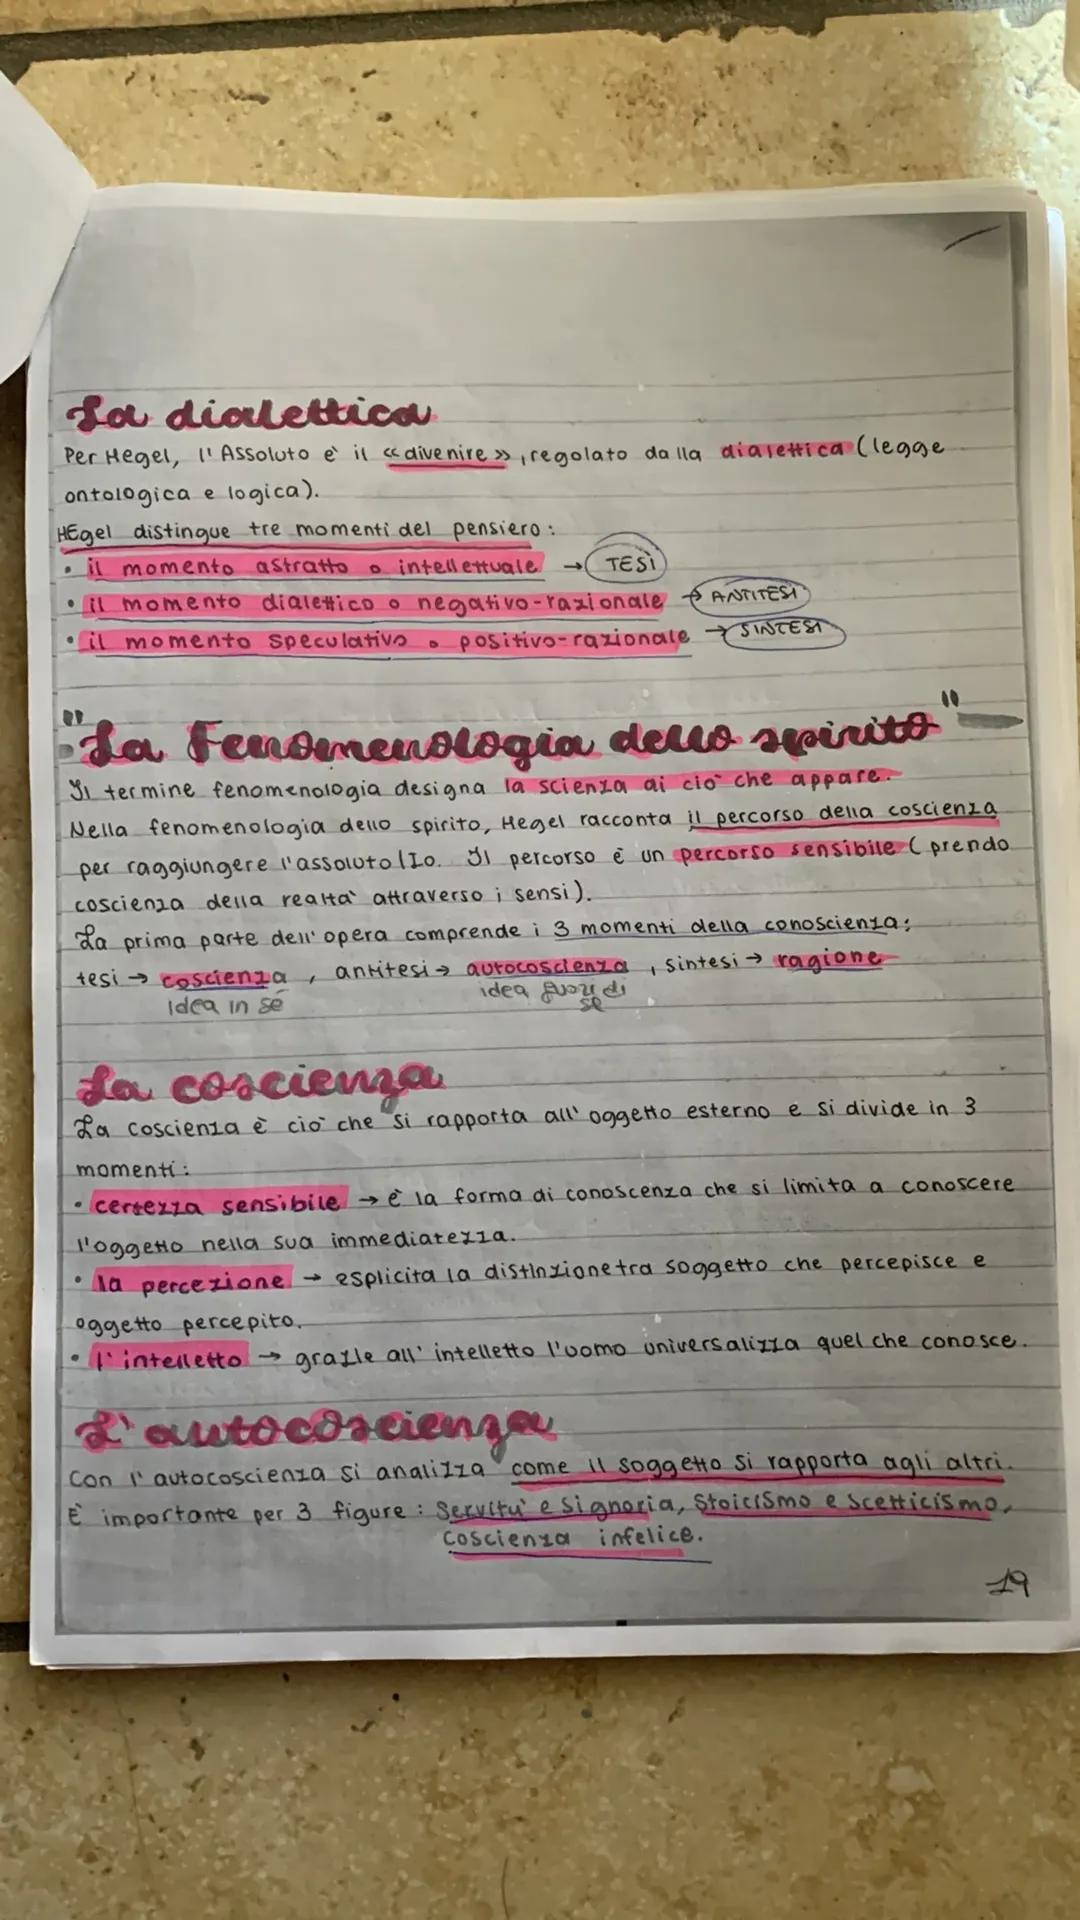 La dialettica
Per Hegel, l'Assoluto è il «divenire», regolato dalla dialettica (legge
ontologica e logica).
HEgel distingue tre momenti del pensiero:
• il momento astratto o intellettuale → TESI
• il momento dialettico o negativo-razionale → ANTITESI
• il momento speculativo o positivo-razionale → SINTESI
"La Fenomenologia dello spirito"
Il termine fenomenologia designa la scienza di ciò che appare.
Nella fenomenologia dello spirito, Hegel racconta il percorso della coscienza
per raggiungere l'assoluto/Io. Il percorso è un percorso sensibile (prendo
coscienza della realtà attraverso i sensi).
La prima parte dell'opera comprende i 3 momenti della conoscienza:
tesi → coscienza, antitesi → autocoscienza, sintesi → ragione
idea in sé idea fuori di
sé
La coscienza
La coscienza è ciò che si rapporta all'oggetto esterno e si divide in 3
momenti:
• certezza sensibile → è la forma di conoscenza che si limita a conoscere
l'oggetto nella sua immediatezza.
• la percezione → esplicita la distinzione tra soggetto che percepisce e
oggetto percepito.
• l'intelletto → grazie all'intelletto l'uomo universalizza quel che conosce.
L'autocoscienza
Con l'autocoscienza si analizza come il soggetto si rapporta agli altri.
È importante per 3 figure: Servitu' e Signoria, Stoicismo e Scetticismo,
Coscienza infelice.
19